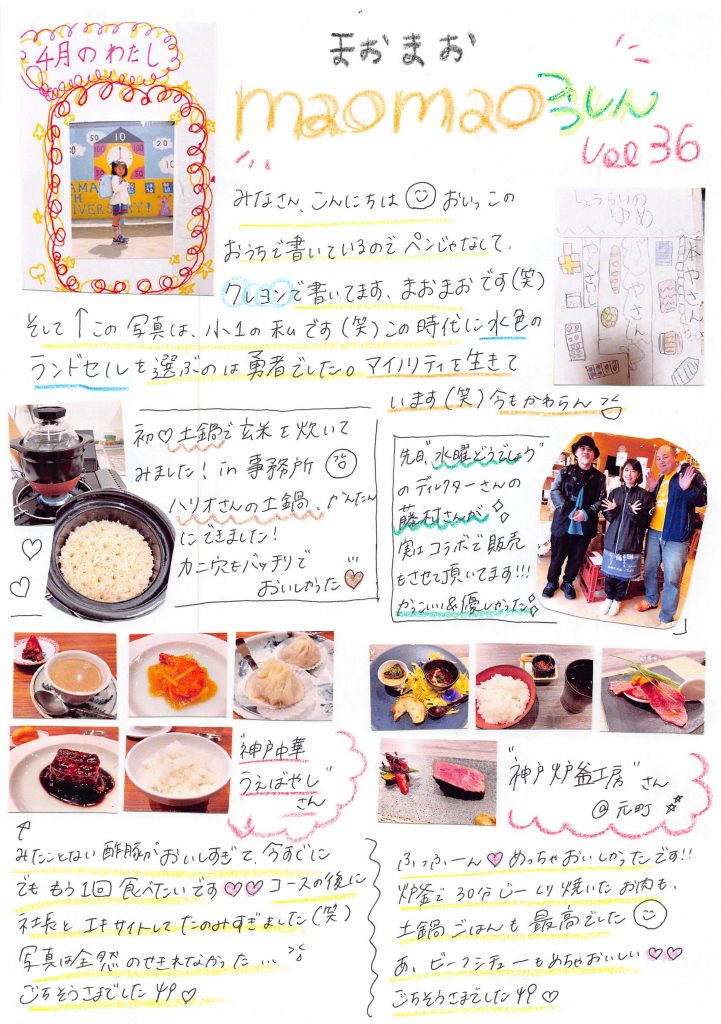 4月のわたし
まおまお
maomaoつうしん
Vol 36
みなさん、こんにちは おいっこの
おうちで書いているので ペンじゃなくて、
クレヨンで書いてます、まおまおです(笑)
そして↑この写真は、小1の私です(笑)この時代に水色の
ランドセルを選ぶのは勇者でした。マイノリティを生きて
います(笑)今もかわらん
しょうらいの
ゆめ
本やさん
初♡土鍋で玄米を炊いて
みました! in 事務所
ハリオさんの土鍋、かんたん
にできました!
カニ穴もバッチリで
おいしかった
先日、"水曜どうでしょう"
のディレクターさんの
藤村さんが
実はコラボで販売
もさせて頂いてます!!!
かっこいい&優しかった
"神戸中華
うえばやし"
さん
"神戸炉釜工房"さん
@元町
↑
みたことない酢豚がおいしすぎて、今すぐに
でももう1回食べたいです♡♡コースの後に
社長とエキサイトしてたのみすぎました(笑)
写真は全然のせきれなかった…
ごちそうさまでした49♡
ふっふーん♡めっちゃおいしかったです!!
炉釜で30分じーっくり焼いたお肉も、
土鍋ごはんも最高でした
あ、ビーフシチューもめちゃおいしい♡♡
ごちそうさまでした49♡